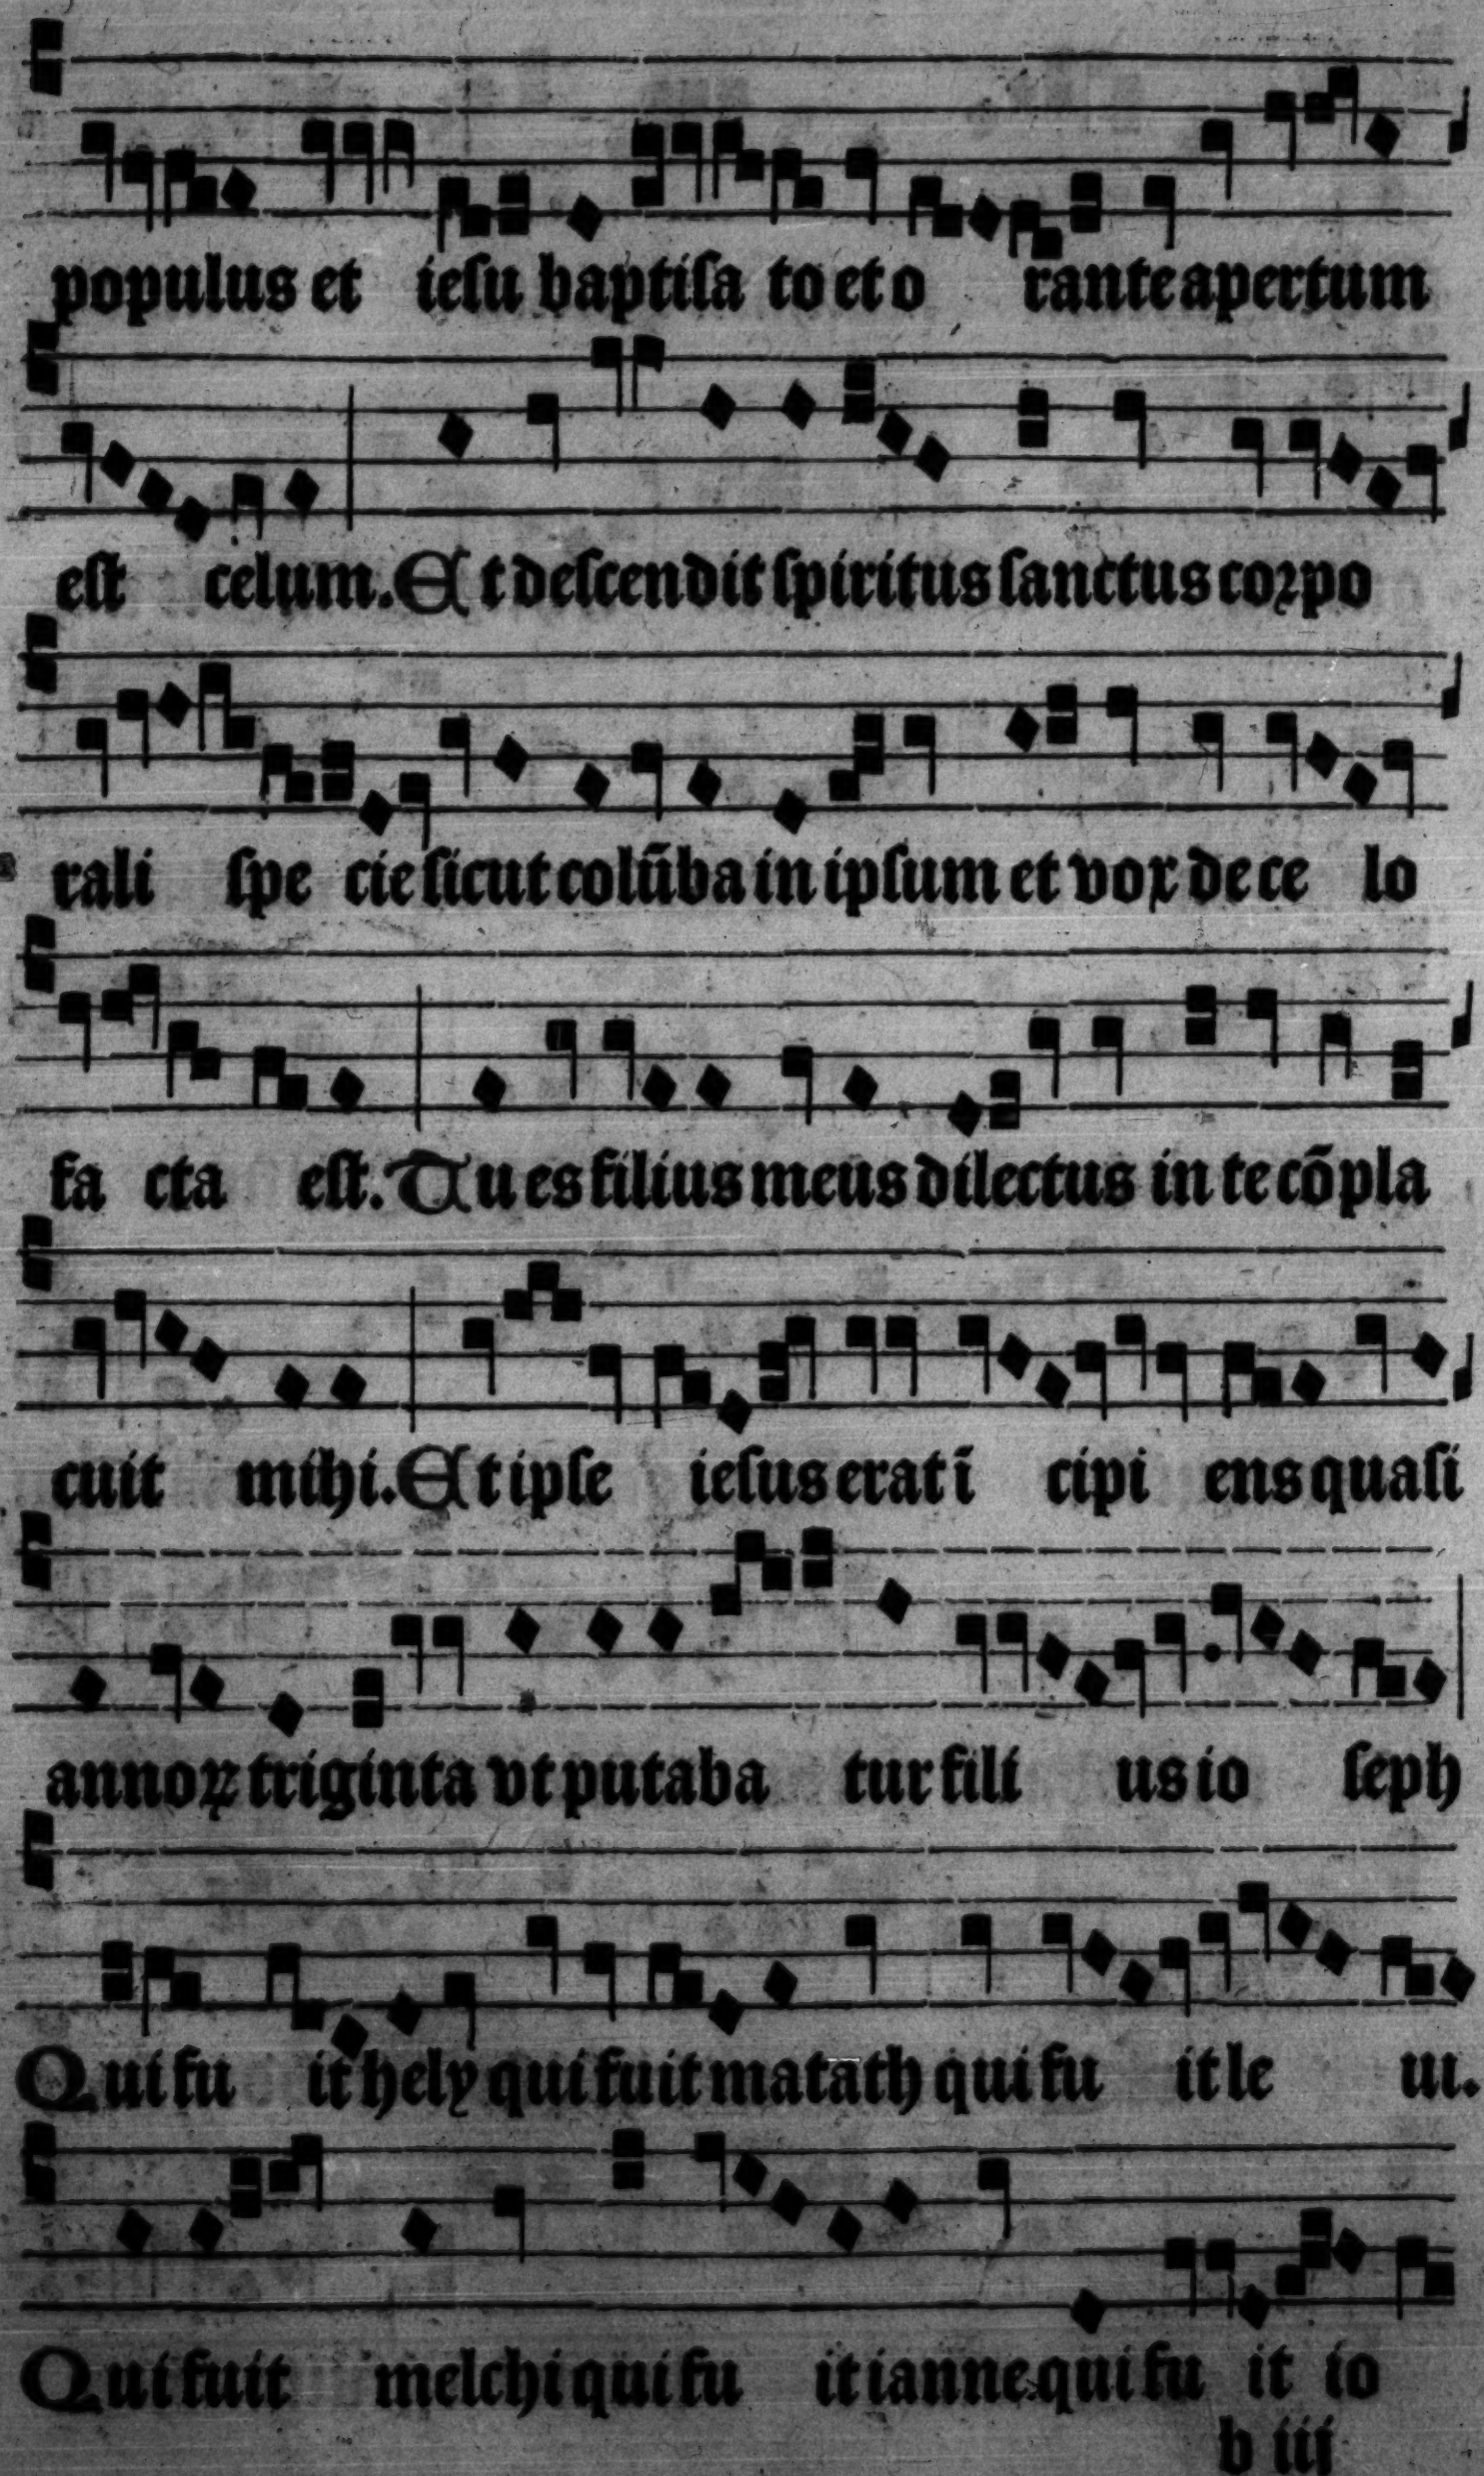 populus et ieſu baptiſa to et o rante apertum
eſt celum. Et deſcendit ſpiritus ſanctus coꝛpo
rali ſpe cie ſicut colūba in ipſum et vox de ce lo
fa cta eſt. Tu es filius meus dilectus in te cōpla
cuit mihi. Et ipſe ieſus erat ī cipi ens quaſi
annoꝝ triginta vt putaba tur fili us io ſeph
Qui fu it hely qui fuit matath qui fu it le ui.
Qui fuit melchi qui fu it ianne qui fu it io
b iij